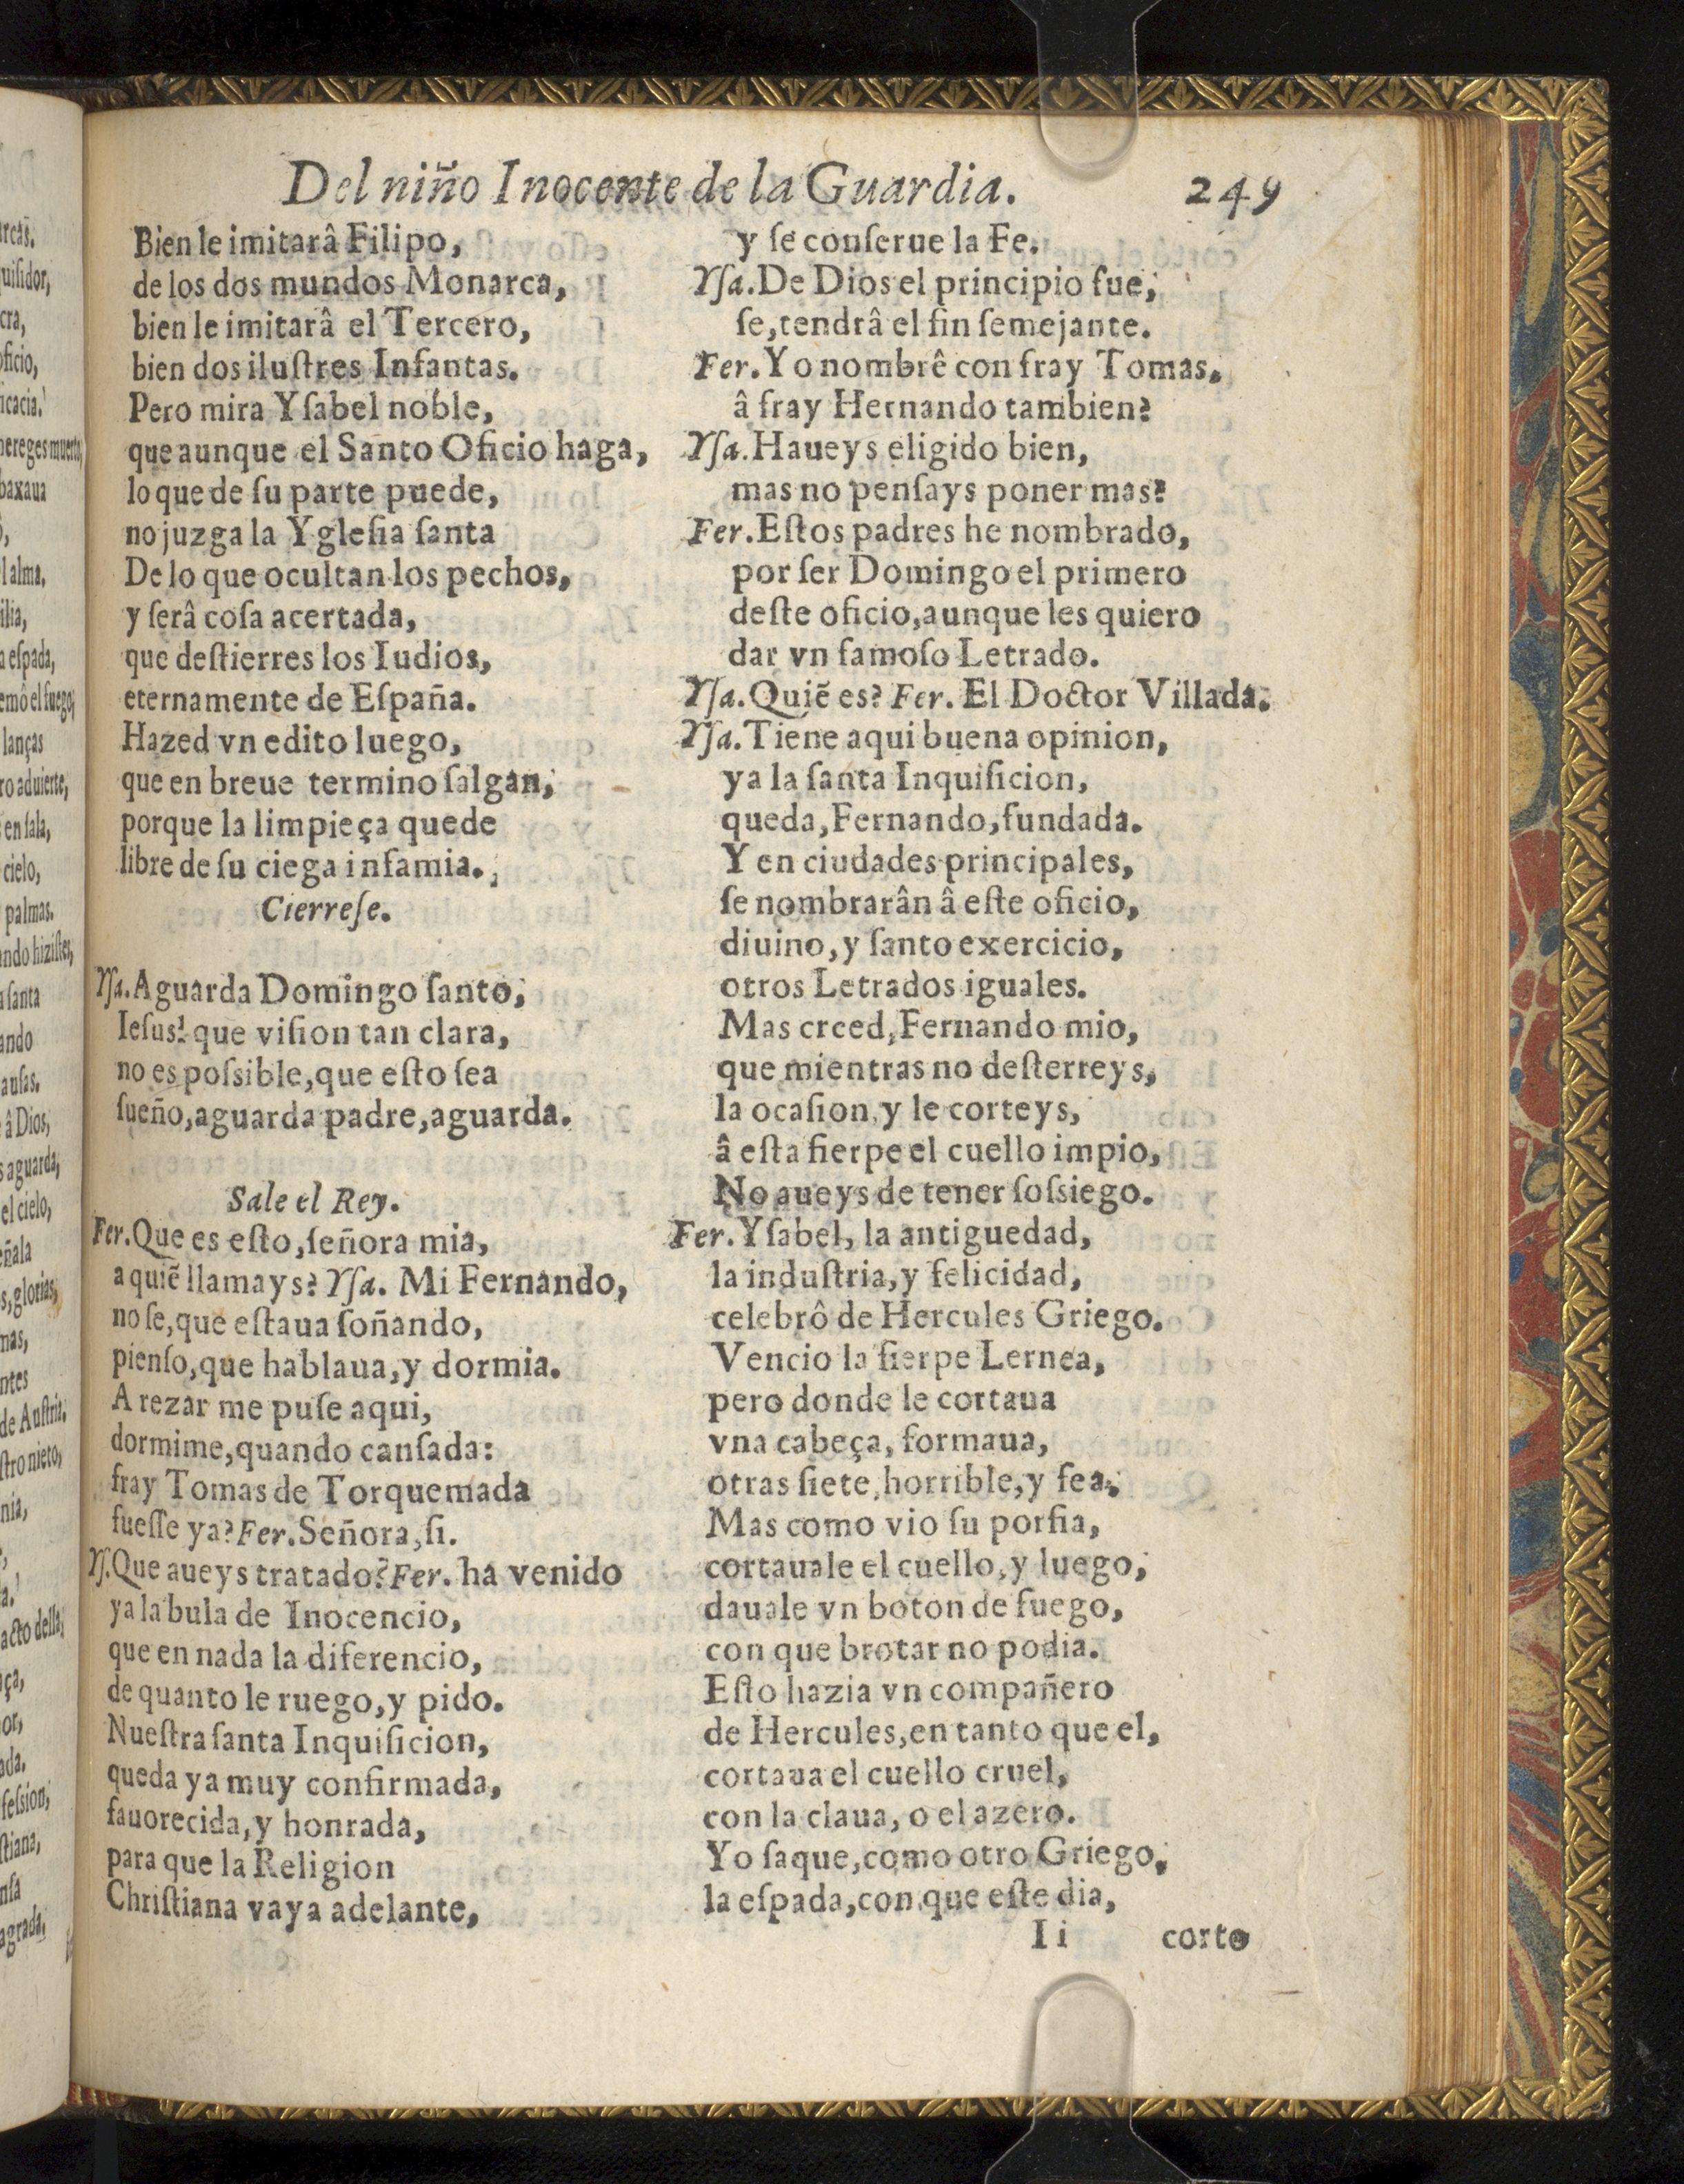 Del niño Inocente de la Guardia. 249
Bien le imitarâ Filipo,
de los dos mundos Monarca,
bien le imitarâ el Tercero,
bien dos iluſtres Infantas.
Pero mira Yſabel noble,
que aunque el Santo Oficio haga,
lo que de ſu parte puede,
no juzga la Ygleſia ſanta
De lo que ocultan los pechos,
y ſerâ coſa acertada,
que deſtierres los Iudios,
eternamente de Eſpaña.
Hazed vn edito luego,
que en breue termino ſalgan,
porque la limpieça quede
libre de ſu ciega infamia.
Cierreſe.
Yſa. Aguarda Domingo ſanto,
Ieſus! que viſion tan clara,
no es poſsible, que eſto ſea
ſueño, aguarda padre, aguarda.
Sale el Rey.
Fer. Que es eſto, ſeñora mia,
a quiẽ llamays? Yſa. Mi Fernando,
no ſe, que eſtaua ſoñando,
pienſo, que hablaua, y dormia.
A rezar me puſe aqui,
dormime, quando canſada:
fray Tomas de Torquemada
fueſſe ya? Fer. Señora, ſi.
Yſ. Que aueys tratado? Fer. ha venido
ya la bula de Inocencio,
que en nada la diferencio,
de quanto le ruego, y pido.
Nueſtra ſanta Inquiſicion,
queda ya muy confirmada,
fauorecida, y honrada,
para que la Religion
Chriſtiana vaya adelante,
y ſe conſerue la Fe.
Yſa. De Dios el principio fue,
ſe, tendrâ el fin ſemejante.
Fer. Yo nombrê con fray Tomas,
â fray Hernando tambien?
Yſa. Haueys eligido bien,
mas no penſays poner mas?
Fer. Eſtos padres he nombrado,
por ſer Domingo el primero
deſte oficio, aunque les quiero
dar vn famoſo Letrado.
Yſa. Quiẽ es? Fer. El Doctor Villada.
Yſa. Tiene aqui buena opinion,
ya la ſanta Inquiſicion,
queda, Fernando, fundada.
Y en ciudades principales,
ſe nombrarân â eſte oficio,
diuino, y ſanto exercicio,
otros Letrados iguales.
Mas creed, Fernando mio,
que mientras no deſterreys,
la ocaſion, y le corteys,
â eſta ſierpe el cuello impio,
No aueys de tener ſoſsiego.
Fer. Yſabel, la antiguedad,
la induſtria, y felicidad,
celebrô de Hercules Griego.
Vencio la ſierpe Lernea,
pero donde le cortaua
vna cabeça, formaua,
otras ſiete, horrible, y fea,
Mas como vio ſu porfia,
cortauale el cuello, y luego,
dauale vn boton de fuego,
con que brotar no podia.
Eſto hazia vn compañero
de Hercules, en tanto que el,
cortaua el cuello cruel,
con la claua, o el azero.
Yo ſaque, como otro Griego,
la eſpada, con que eſte dia,
Ii corto